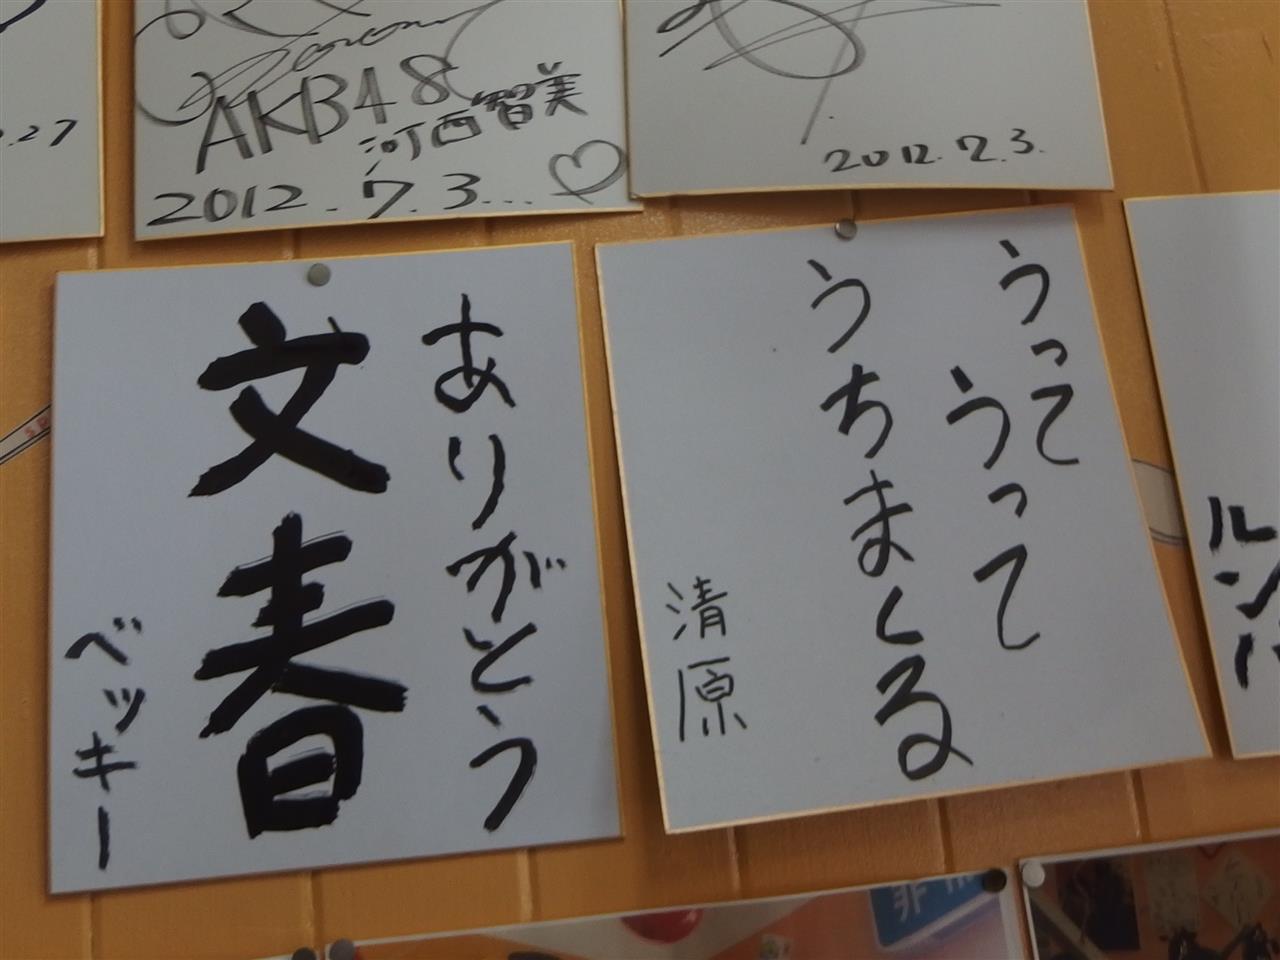 .27
AKB48
河西智美
2012.7.3...
2012.7.3.
ありがとう
文春
ベッキー
うって
うって
うちまくる
清原
ルンバ